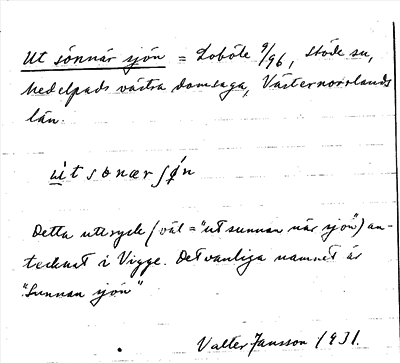 Ut sönnär sjön = Loböle 9/96, Stöde sn,
Medelpads västra domsaga, Västernorrlands
län.
ùt sɒnær ʃǿn
Detta uttryck (väl = "ut sunnan när sjön") an-
tecknat i Vigge. Det vanliga namnet är
"Sunnan sjön"
Valter Jansson 1931.